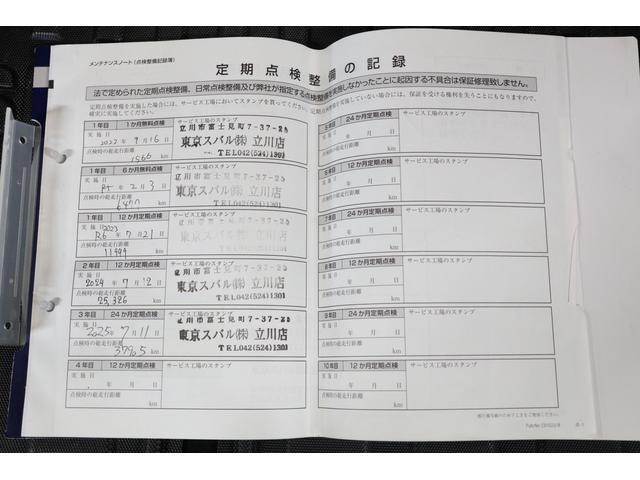 メンテナンスノート(点検整備記録簿)
定期点検整備の記録
法で定められた定期点検整備、日常点検整備及び弊社が指定する点検整備を実施しなかったことに起因する不具合は保証修理致しません。
定期点検整備を実施した場合には、サービス工場においてスタンプを貰ってください。定期点検整備を実施していない場合には、保証を受ける権利を失うこともなりますので、
確実に実施してください。
1年目 1か月無料点検 サービス工場のスタンプ
実施日
2022年9月16日
点検時の総走行距離
1566 km
立川市富士見町7-37-25
東京スバル㈱ 立川店
TEL042(524)1301
1年目 6か月無料点検 サービス工場のスタンプ
実施日
R5年2月3日
点検時の総走行距離
6477 km
立川市富士見町7-37-25
東京スバル㈱ 立川店
TEL042(524)1301
1年目 12か月定期点検 サービス工場のスタンプ
実施日
2023
R6年7月21日
点検時の総走行距離
km
立川市富士見町7-37-25
東京スバル㈱ 立川店
TEL042(524)1301
2年目 12か月定期点検 サービス工場のスタンプ
実施日
2024年7月12日
点検時の総走行距離
25,326 km
立川市富士見町7-37-25
東京スバル㈱ 立川店
TEL042(524)1301
3年目 24か月定期点検 サービス工場のスタンプ
実施日
2025年7月11日
点検時の総走行距離
37965 km
立川市富士見町7-37-25
東京スバル㈱ 立川店
TEL042(524)1301
4年目 12か月定期点検 サービス工場のスタンプ
実施日
年 月 日
点検時の総走行距離
km
5年目 24か月定期点検 サービス工場のスタンプ
実施日
年 月 日
点検時の総走行距離
km
6年目 12か月定期点検 サービス工場のスタンプ
実施日
年 月 日
点検時の総走行距離
km
7年目 24か月定期点検 サービス工場のスタンプ
実施日
年 月 日
点検時の総走行距離
km
8年目 12か月定期点検 サービス工場のスタンプ
実施日
年 月 日
点検時の総走行距離
km
9年目 24か月定期点検 サービス工場のスタンプ
実施日
年 月 日
点検時の総走行距離
km
10年目 12か月定期点検 サービス工場のスタンプ
実施日
年 月 日
点検時の総走行距離
km